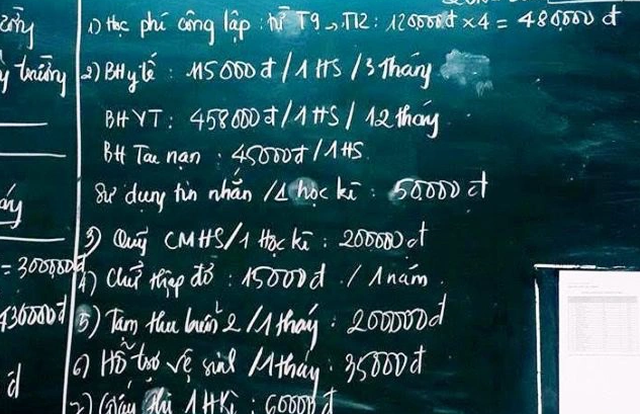 1) Học phí công lập : từ T9 → T12 : 120.000đ × 4 = 480.000 đ
2) BH y tế : 115000đ / 1 HS / 3 tháng
BHYT : 458000đ / 1 HS / 12 tháng
BH Tai nạn : 45000đ / 1HS
Sử dụng tin nhắn / 1 học kì : 50.000 đ
3) Quỹ CMHS / 1 Học kì : 200000 đ
4) Chữ thập đỏ : 15000đ / 1 năm
5) Tạm thu buổi 2 / 1 tháng : 200000đ
6) Hỗ trợ vệ sinh / 1 tháng : 35000đ
7) Giấy thi 1 HKì : 60000 đ
trường
= 300000đ
430000đ
đ